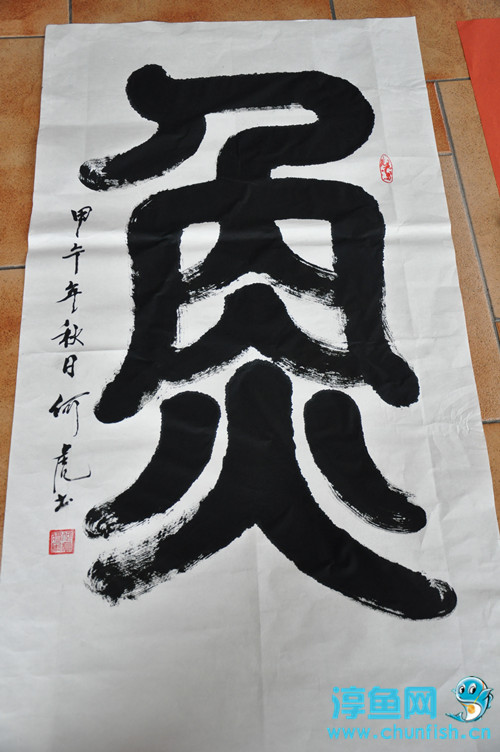 魚
甲午年秋日何虎书
淳鱼网
www.chunfish.cn